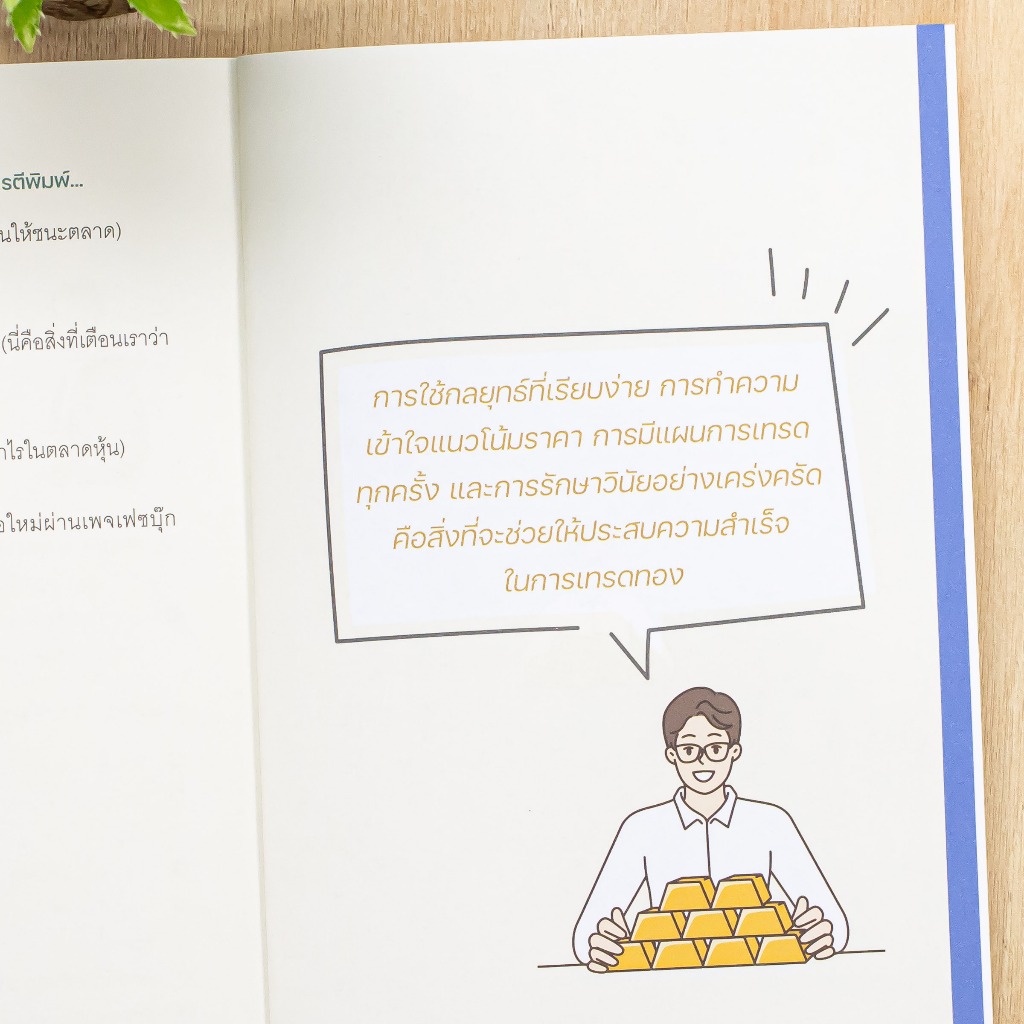 รตีพิมพ์...
นให้ชนะตลาด)
(นี่คือสิ่งที่เตือนเราว่า
าไรในตลาดหุ้น)
อใหม่ผ่านเพจเฟซบุ๊ก
การใช้กลยุทธ์ที่เรียบง่าย การทำความ
เข้าใจแนวโน้มราคา การมีแผนการเทรด
ทุกครั้ง และการรักษาวินัยอย่างเคร่งครัด
คือสิ่งที่จะช่วยให้ประสบความสำเร็จ
ในการเทรดทอง